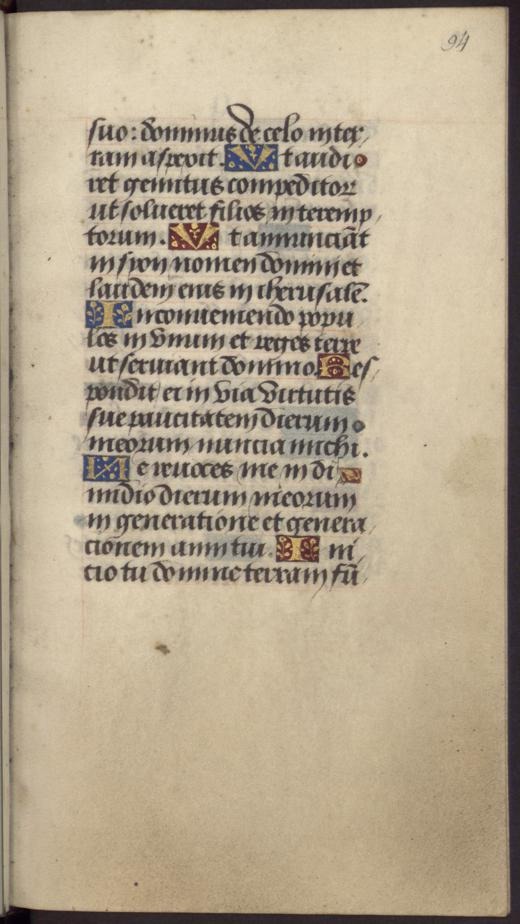 94
suo: dominus de celo in ter
ram aspexit. Vt audi
ret gemitus compeditor
ut solueret filios interemp
torum. Vt annunciāt
in syon nomen domini et
laudem eius in iherusalē.
In conueniendo popu
los in vnum et reges terre
ut seruiant domino. Res
pondit ei in via virtutis
sue paucitatem dierum
meorum nuncia michi.
Ne reuoces me in di
midio dierum meorum
in generatione et genera
cionem anni tui. Ini
cio tu domine terram fū